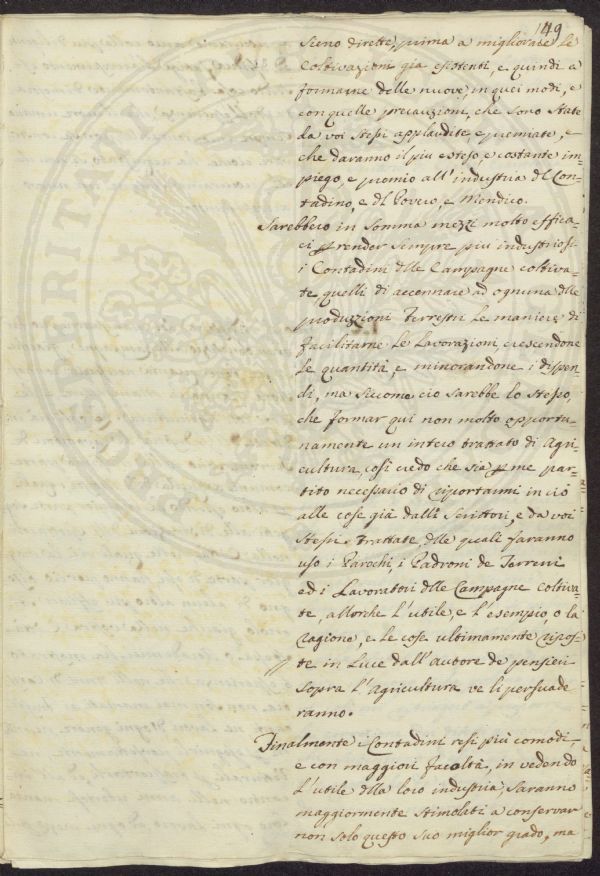 149
sieno dirette, prima a migliorare le
Coltivazioni già esistenti, e quindi a
formarne delle nuove, in quei modi, e
con quelle precauzioni, che sono state
da voi stessi applaudite, e premiate, e
che daranno il piu esteso, e costante im-
piego, e premio all'industria del Con-
tadino, e del Povero, e Mendico.
Sarebbero in somma mezzi molto effica-
ci per render sempre piu industriosi
i Contadini delle Campagne coltiva-
te quelli di accennare ad ognuna delle
produzzioni Terrestri le maniere di
facilitarne le Lavorazioni, crescendone
le quantità, e minorandone i dispen-
di, ma siccome ciò sarebbe lo stesso,
che formar qui non molto opportu-
namente un intero trattato di Agri-
cultura, così credo che sia per me par-
tito necessario di riportarmi in ciò
alle cose già dalli Scrittori, e da voi
stessi trattate, delle quali faranno
uso i Parochi, i Padroni de Terreni
ed i Lavoratori delle Campagne coltiva-
te, allorche l'utile, e l'esempio, o la
ragione, e le cose ultimamente ripos-
te in Luce dall'autore de pensieri
sopra l'Agricultura ve li persuade
ranno.
Finalmente i Contadini resi più comodi,
e con maggiori facoltà, in vedendo
l'utile della loro industria, saranno
maggiormente stimolati a conservar
non solo questo suo miglior grado, ma